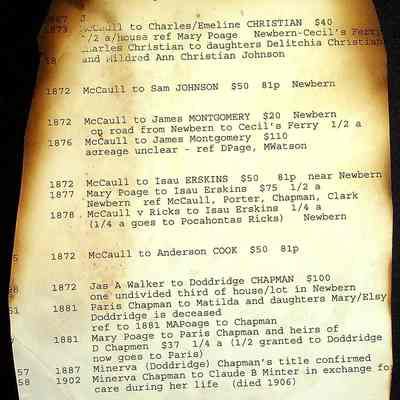 1867 J
1873 McCaull to Charles/Emeline CHRISTIAN $40
1/2 a/house ref Mary Poage Newbern-Cecil's Ferry
Charles Christian to daughters Delitchia Christian
18 and Mildred Ann Christian Johnson
1872 McCaull to Sam JOHNSON $50 81p Newbern
1872 McCaull to James MONTGOMERY $20 Newbern
on road from Newbern to Cecil's Ferry 1/2 a
1876 McCaull to James Montgomery $110
acreage unclear - ref DPage, MWatson
1872 McCaull to Isau ERSKINS $50 81p near Newbern
1877 Mary Poage to Isau Erskins $75 1/2 a
Newbern ref McCaull, Porter, Chapman, Clark
1878 McCaull v Ricks to Isau Erskins 1/4 a
(1/4 a goes to Pocahontas Ricks) Newbern
5 1872 McCaull to Anderson COOK $50 81p
8 1872 Jas A Walker to Doddridge CHAPMAN $100
one undivided third of house/lot in Newbern
51 1881 Paris Chapman to Matilda and daughters Mary/Elsy
Doddridge is deceased
ref to 1881 MAPoage to Chapman
1881 Mary Poage to Paris Chapman and heirs of
D Chapmen $37 1/4 a (1/2 granted to Doddridge
now goes to Paris)
57 1887 Minerva (Doddridge) Chapman's title confirmed
58 1902 Minerva Chapman to Claude B Minter in exchange fo
care during her life (died 1906)